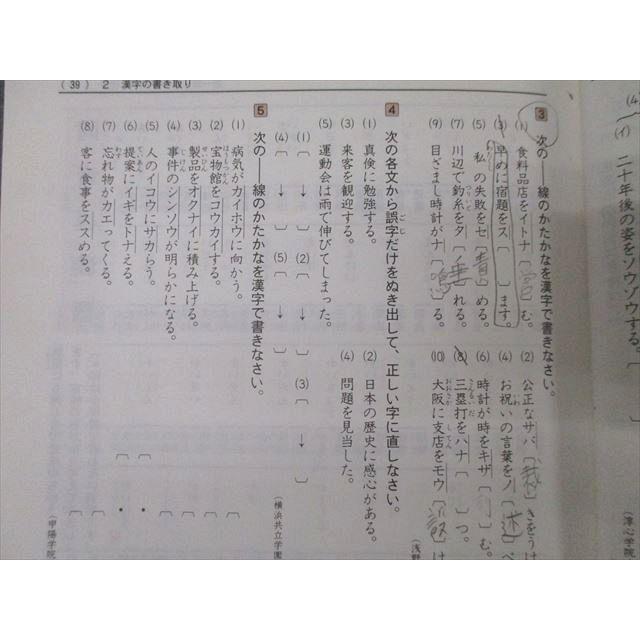 (39) 2 漢字の書き取り
二十年後の姿をソウゾウする。
(津心学院
3 次の――線のかたかなを漢字で書きなさい。
(1) 食料品店をイトナ〔営〕む。
(2) 公正なサバ〔裁〕きをうけ
(3) 早めに宿題をス〔 〕ます。
(4) お祝いの言葉をノ〔述〕べ
(5) 私の失敗をセ〔責〕める。
(6) 時計が時をキザ〔刻〕む。
(7) 川辺で釣糸をタ〔垂〕れる。
(8) 三塁打をハナ〔 〕つ。
(9) 目ざまし時計がナ〔鳴〕る。
(10) 大阪に支店をモウ〔設〕け
(浅野
4 次の各文から誤字だけをぬき出して、正しい字に直しなさい。
(1) 真倹に勉強する。
(2) 日本の歴史に感心がある。
(3) 来客を観迎する。
(4) 問題を見当した。
(5) 運動会は雨で伸びてしまった。
(1)〔 ↓ 〕 (2)〔 ↓ 〕 (3)〔 ↓ 〕
(4)〔 ↓ 〕 (5)〔 ↓ 〕
(横浜共立学園
5 次の――線のかたかなを漢字で書きなさい。
(1) 病気がカイホウに向かう。
(2) 宝物館をコウカイする。
(3) 製品をオクナイに積み上げる。
(4) 事件のシンソウが明らかになる。
(5) 人のイコウにサカらう。
(6) 提案にイギをトナえる。
(7) 忘れ物がカエってくる。
(8) 客に食事をススめる。
(甲陽学院